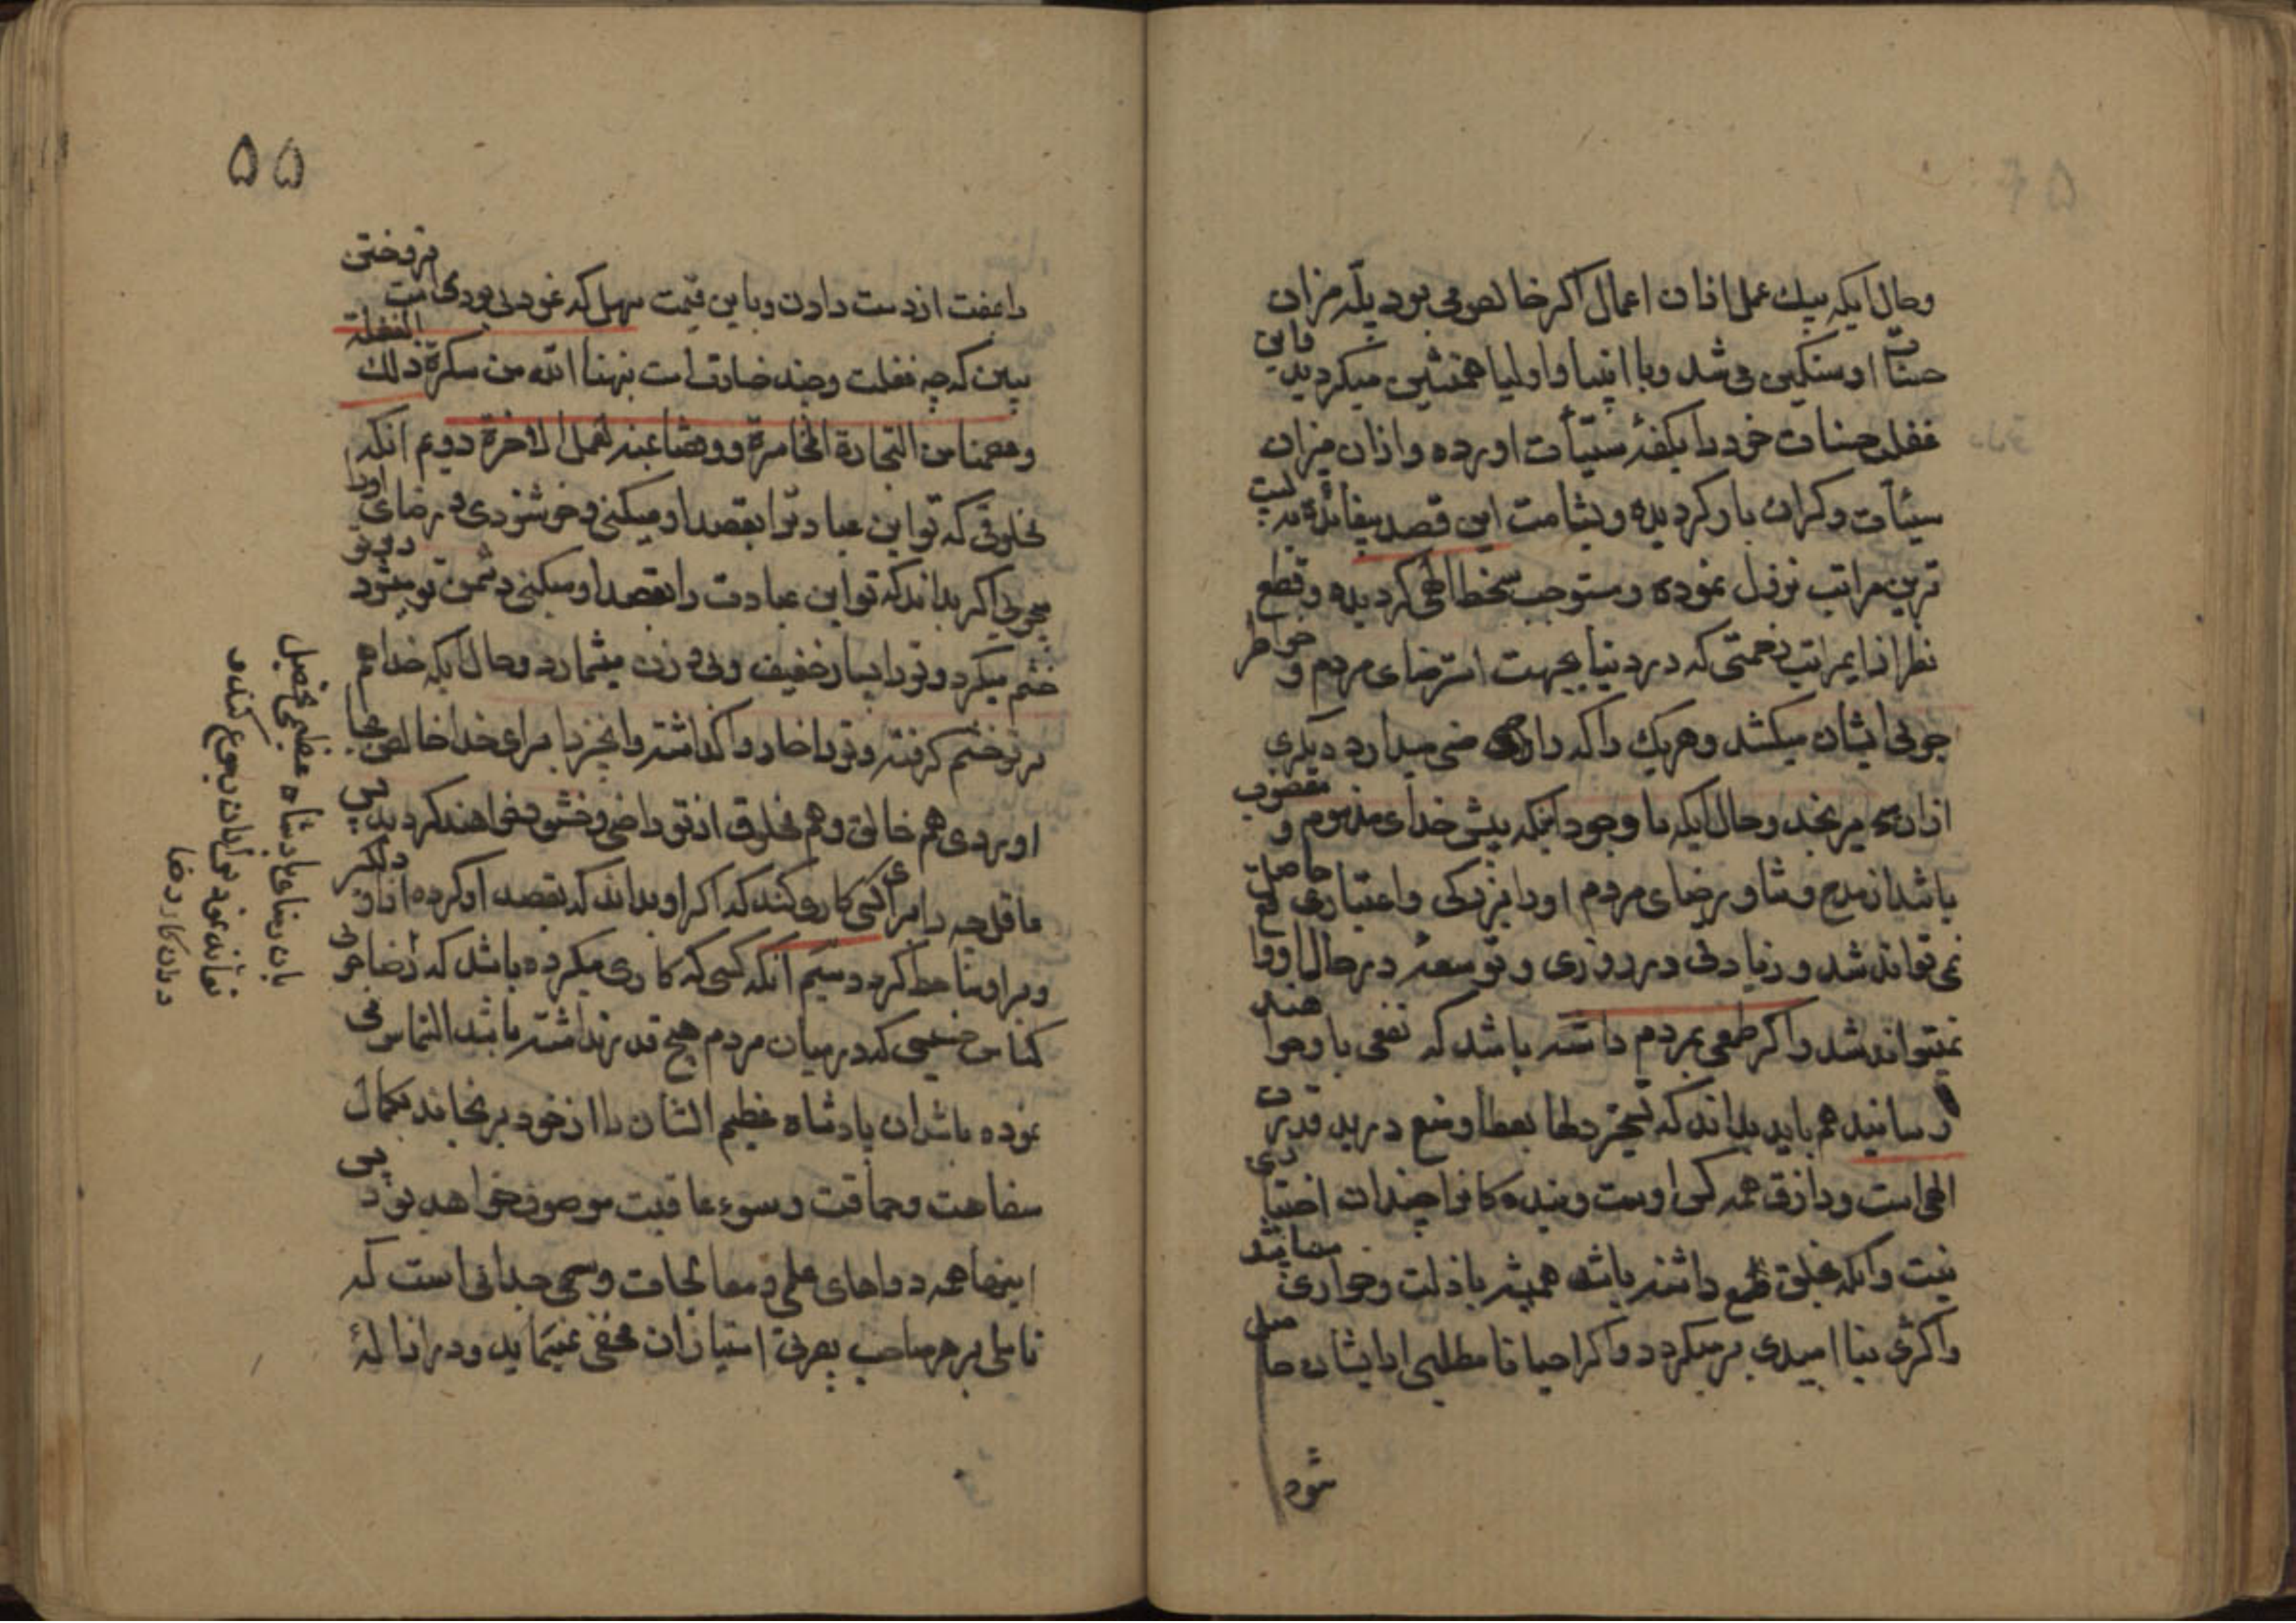 وحال ایکه بیک عمل ازان اعمال اکر خالص می بود پلّه مزان
حسنات او سنکین می شد وبا انبیا و اولیا همنشین میکردید باین
غفلت حسنات خود را بکفهٔ سیّئات اورده وازان میزان
سیئات وکران بار کردیده وبشامت این قصد بیفائده به پست
ترین مراتب نزول نموده ومستوجب سخط الهی کردیده وقطع
نظر ازایمراتب زحمتی که در دنیا بجهت استرضای مردم و خواطر
جوئی ایشان میکشد وهریک را که راضی میدارد دیکری
ازان می رنجد وحال ایکه با وجود اینکه پیش خدای مذموم و مغضوب
باشد از مدح وثنا ورضای مردم اورا بزرکی واعتباری حاصل
نمی تواند شد وزیادتی در روزی وتوسعهٔ در حال او واقع
نمیتواند شد واکر طمعی بمردم داشته باشد که نفعی باو خواهند
رسانید هم باید بداند که تسخیر دلها بعطا ومنع در ید قدرت
الهی است ورازق همه کس اوست وبنده کانرا چندان اختیاری
نیست وانکه بخلق طمع داشته باشد همیشه باذلت وخواری میباشد
واکثری بنا امیدی برمیکردد واکر احیانا مطلبی ازایشان حاصل
شود
۵۵
رایفت ازدست دادن وباین قیمت سهل که خود نمودی فروختی
ببین که چه غفلت وچند خسارت است نبهنا الله من سکرة ذلک الغفلة
وعصمنا من التجارة الخاسرة ووفقنا عنده لعمل الاخرة دویم انکه
مخلوقی که تو این عبادترا بقصد او میکنی وخوشنودی ورضای اورا
میجوئی اکر بداند که تو این عبادت را بقصد او میکنی دشمن تو میشود وبر تو
خشم میکیرد وتورا بسیار خفیف وبی وزن میشمارد وحال ایکه خدا هم
بر تو خشم کرفته وتورا خار واکذاشته وانچه را برای خدا خالص بجا
اوردی هم خالق وهم مخلوق ازتو راضی وخشنود خواهند کردید پس
عاقل چه را برای کسی کاری کند که اکر او بداند که بقصد او کرده ازاو دلکیر
وبر او ساخط کردد سیّم انکه کسی که کاری میکرده باشد که رضاجوئی
کناس خسیسی که در میان مردم هیچ قدر نداشته باشد التماس می
نموده باشد ان پادشاه عظیم الشان را ازخود برنجاند بکمال
سفاهت وحماقت وسوء عاقبت موصوف خواهد بود پس
اینها همه دواهای علمی ومعالجات وسمی جدانی است که
تاملی بر هر صاحب بصرتی امتیازان مخفی نمینماید ودر ازالهٔ
بان رضای پادشاه عظیمی تحصیل